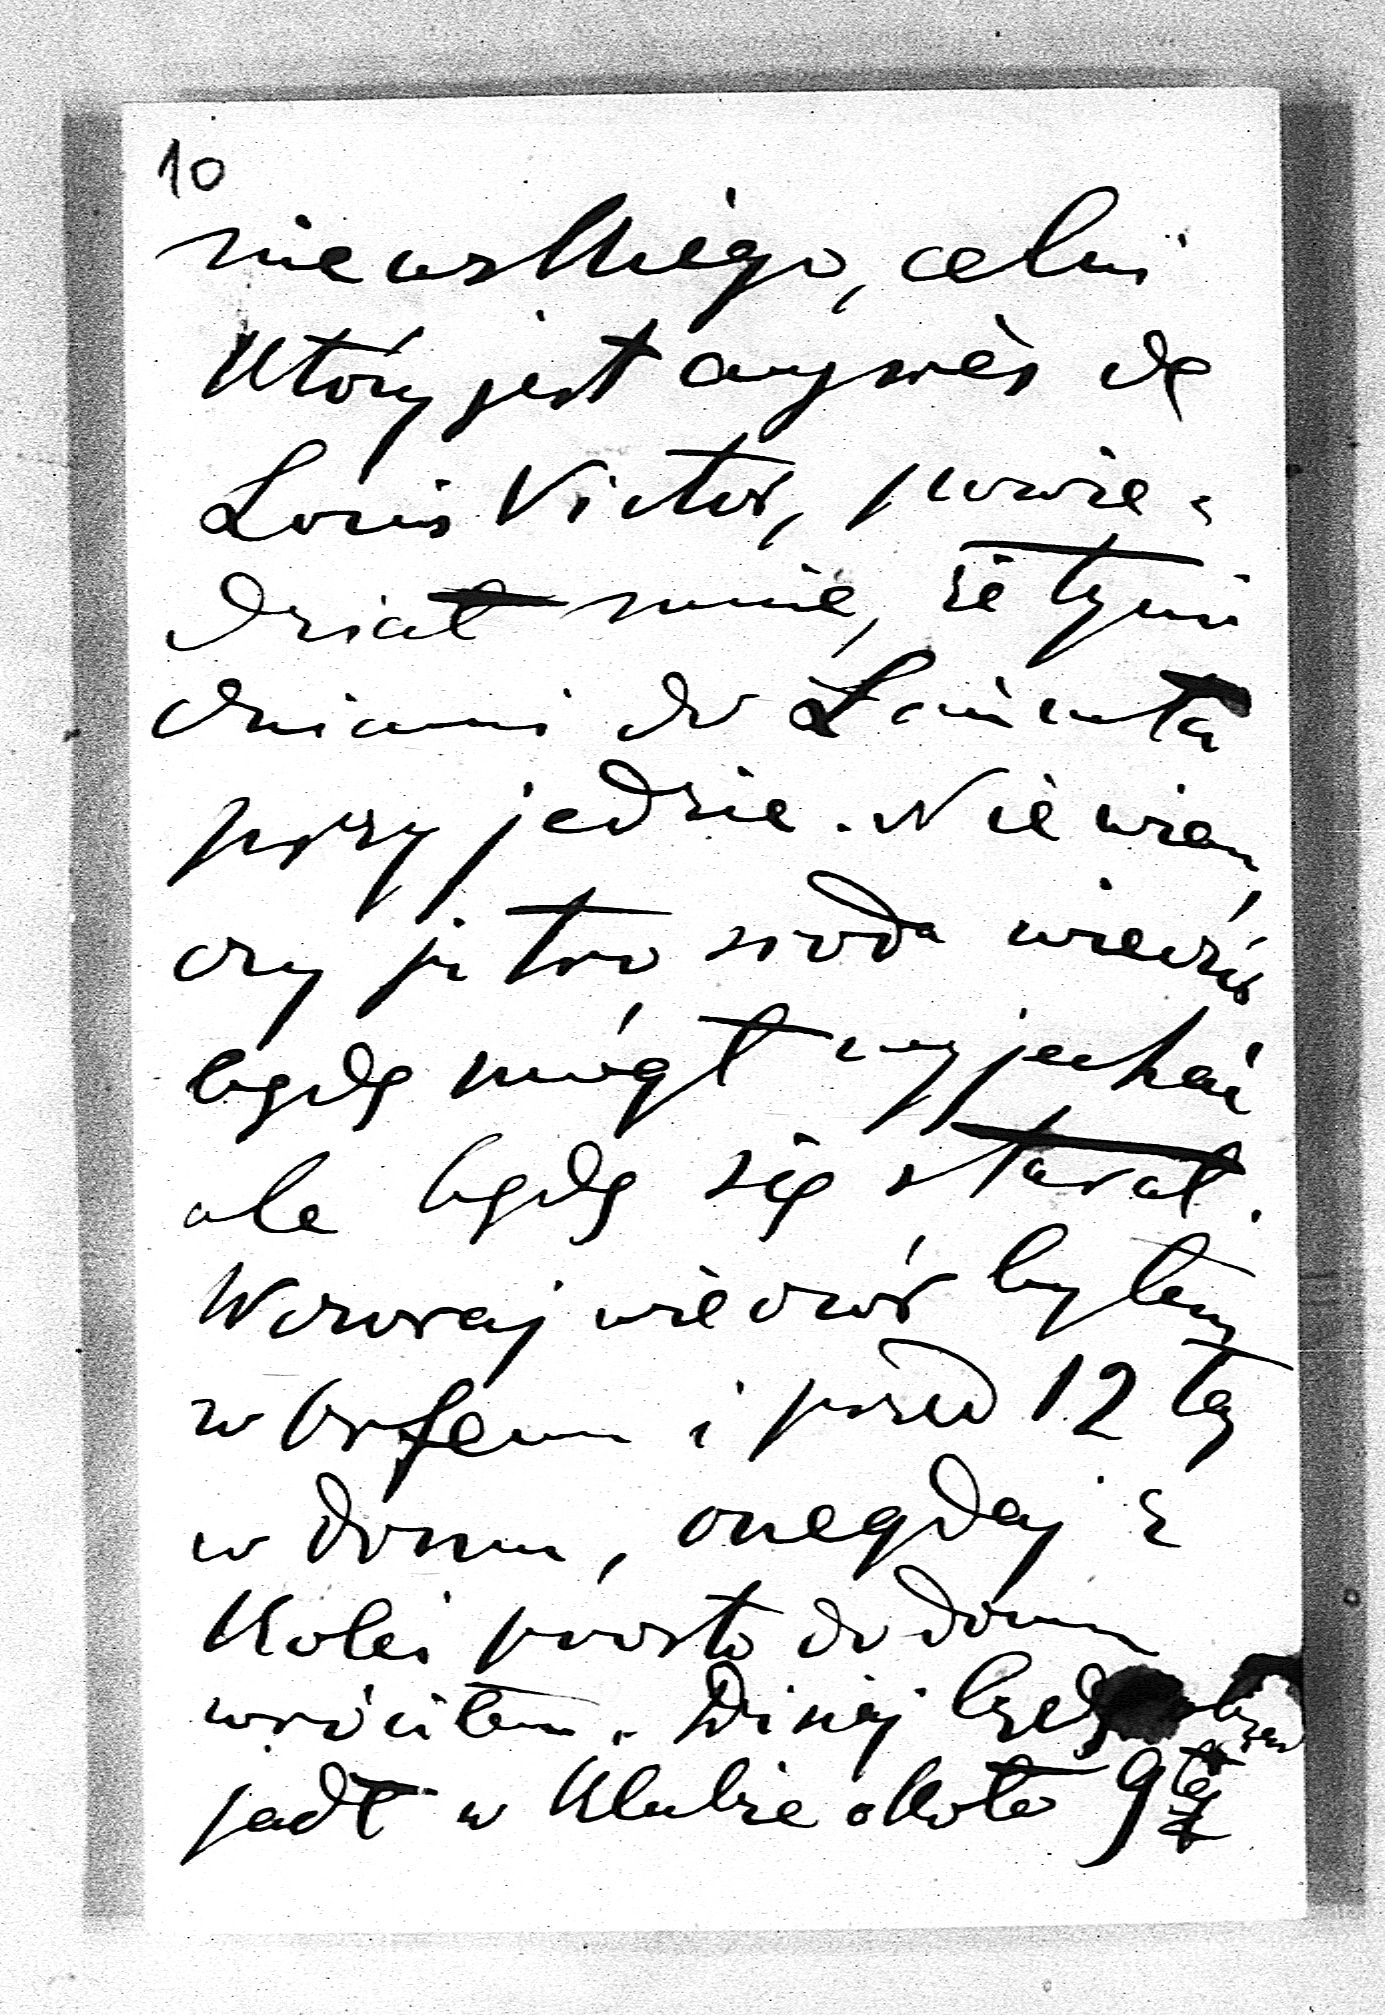 10
niewskiego, celui
który jest auprès de
Louis Victor, powie-
dział mnie, że tymi
dniami do Łańcuta
przyjedzie. Nie wiem,
czy jutro środa wieczór
będę mógł wyjechać
ale będę się starał.
Wczoraj wieczór byłem
w Orfeum i przed 12tą
w domu, onegdaj z
kolei prosto do domu
wróciłem. Dzisiaj będę
jadł w Klubie około 9tej